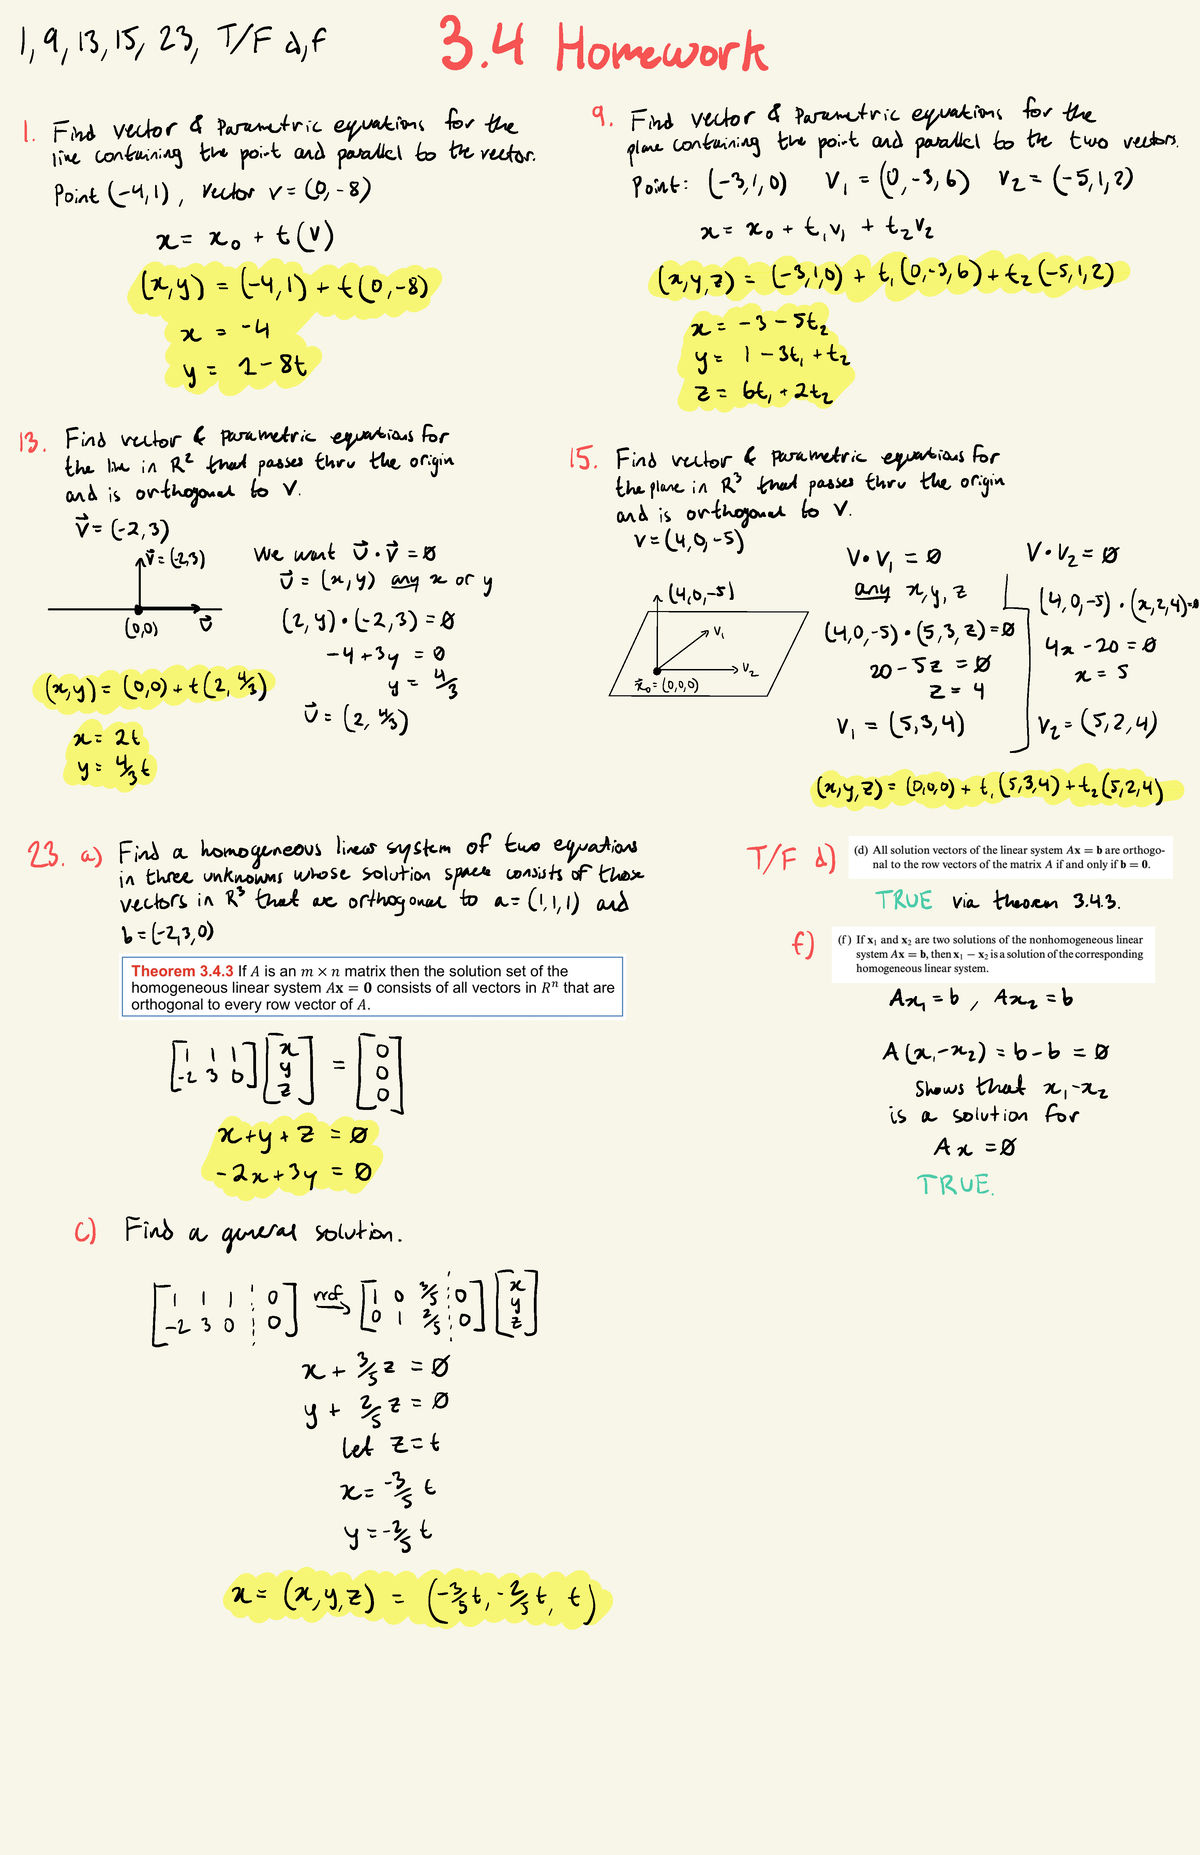 1, 9, 13, 15, 23, T/F d,f
3.4 Homework
1. Find vector & Parametric equations for the
line containing the point and parallel to the vector.
Point (-4,1), vector v = (0,-8)
x = x₀ + t(v)
(x,y) = (-4,1) + t(0,-8)
x = -4
y = 1-8t
9. Find vector & Parametric equations for the
plane containing the point and parallel to the two vectors.
Point: (-3,1,0) v₁ = (0,-3,6) v₂ = (-5,1,2)
x = x₀ + t₁v₁ + t₂v₂
(x,y,z) = (-3,1,0) + t₁(0,-3,6) + t₂(-5,1,2)
x = -3 - 5t₂
y = 1 - 3t₁ + t₂
z = 6t₁ + 2t₂
13. Find vector & parametric equations for
the line in R² that passes thru the origin
and is orthogonal to v.
v⃗ = (-2,3)
v⃗ = (-2,3)
(0,0) v⃗
We want v⃗ · v⃗ = 0
v⃗ = (x,y) any x or y
(2,y) · (-2,3) = 0
-4 + 3y = 0
y = 4/3
v⃗ = (2, 4/3)
(x,y) = (0,0) + t(2, 4/3)
x = 2t
y = 4/3 t
15. Find vector & parametric equations for
the plane in R³ that passes thru the origin
and is orthogonal to v.
v = (4,0,-5)
(4,0,-5)
v₁
v₂
x⃗₀ = (0,0,0)
v · v₁ = 0
any x,y,z
(4,0,-5) · (5,3,z) = 0
20 - 5z = 0
z = 4
v₁ = (5,3,4)
v · v₂ = 0
(4,0,-5) · (x,2,4) = 0
4x - 20 = 0
x = 5
v₂ = (5,2,4)
(x,y,z) = (0,0,0) + t₁(5,3,4) + t₂(5,2,4)
23. a) Find a homogeneous linear system of two equations
in three unknowns whose solution space consists of those
vectors in R³ that are orthogonal to a = (1,1,1) and
b = (-2,3,0)
Theorem 3.4.3 If A is an m × n matrix then the solution set of the
homogeneous linear system Ax = 0 consists of all vectors in Rⁿ that are
orthogonal to every row vector of A.
[1 1 1] [x] = [0]
[-2 3 0] [y] [0]
[z] [0]
x + y + z = 0
-2x + 3y = 0
c) Find a general solution.
[1 1 1 ¦ 0] rref → [1 0 3/5 ¦ 0] [x]
[-2 3 0 ¦ 0] [0 1 2/5 ¦ 0] [y]
[z]
x + 3/5 z = 0
y + 2/5 z = 0
Let z = t
x = -3/5 t
y = -2/5 t
x = (x,y,z) = (-3/5 t, -2/5 t, t)
T/F d) (d) All solution vectors of the linear system Ax = b are orthogo-
nal to the row vectors of the matrix A if and only if b = 0.
TRUE via theorem 3.4.3.
f) (f) If x₁ and x₂ are two solutions of the nonhomogeneous linear
system Ax = b, then x₁ − x₂ is a solution of the corresponding
homogeneous linear system.
Ax₁ = b, Ax₂ = b
A(x₁-x₂) = b-b = 0
Shows that x₁-x₂
is a solution for
Ax = 0
TRUE.